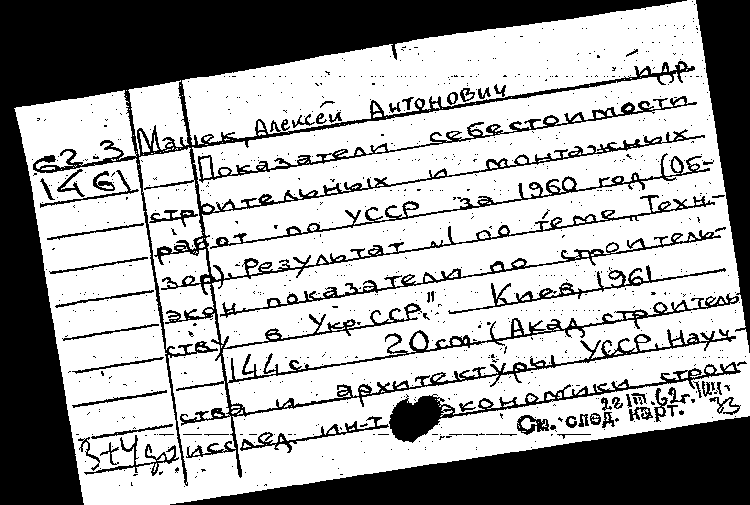 и др.
62.3 Мацек, Алексей Антонович
1461 Показатели себестоимости
строительных и монтажных
работ по УССР за 1960 год (Об-
зор). Результат №1 по теме "Техн.-
экон. показатели по строитель-
ству в Укр. ССР." Киев, 1961
144 с. 20 см. (Акад. строитель-
ства и архитектуры УССР. Науч-
исслед. ин-т экономики строи-
28 III.62 г.
См. след. карт.